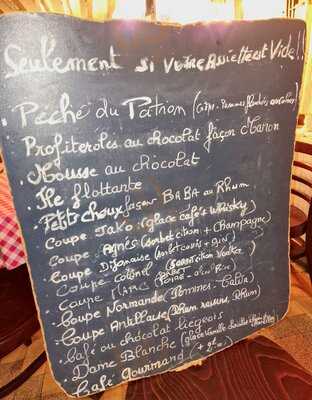 Seulement si votre Assiette est Vide !!
. Péché du Patron (
Profiteroles au chocolat façon Manon
. Mousse au chocolat
. Ile flottante
. Petits choux façon BABA au Rhum
. Coupe Jako (glace café + whisky)
. Coupe Agnès (sorbet citron + Champagne)
. Coupe Dijonaise (sorbet cassis + gin)
. Coupe Colonel (sorbet citron Vodka)
. Coupe Marc (sorbet Poire
. Coupe Normande (Pommes - Calva)
. Coupe Antillaise (Rhum raisins, Rhum)
. Café ou chocolat liégeois
. Dame Blanche (glace vanille
. Café Gourmand (+